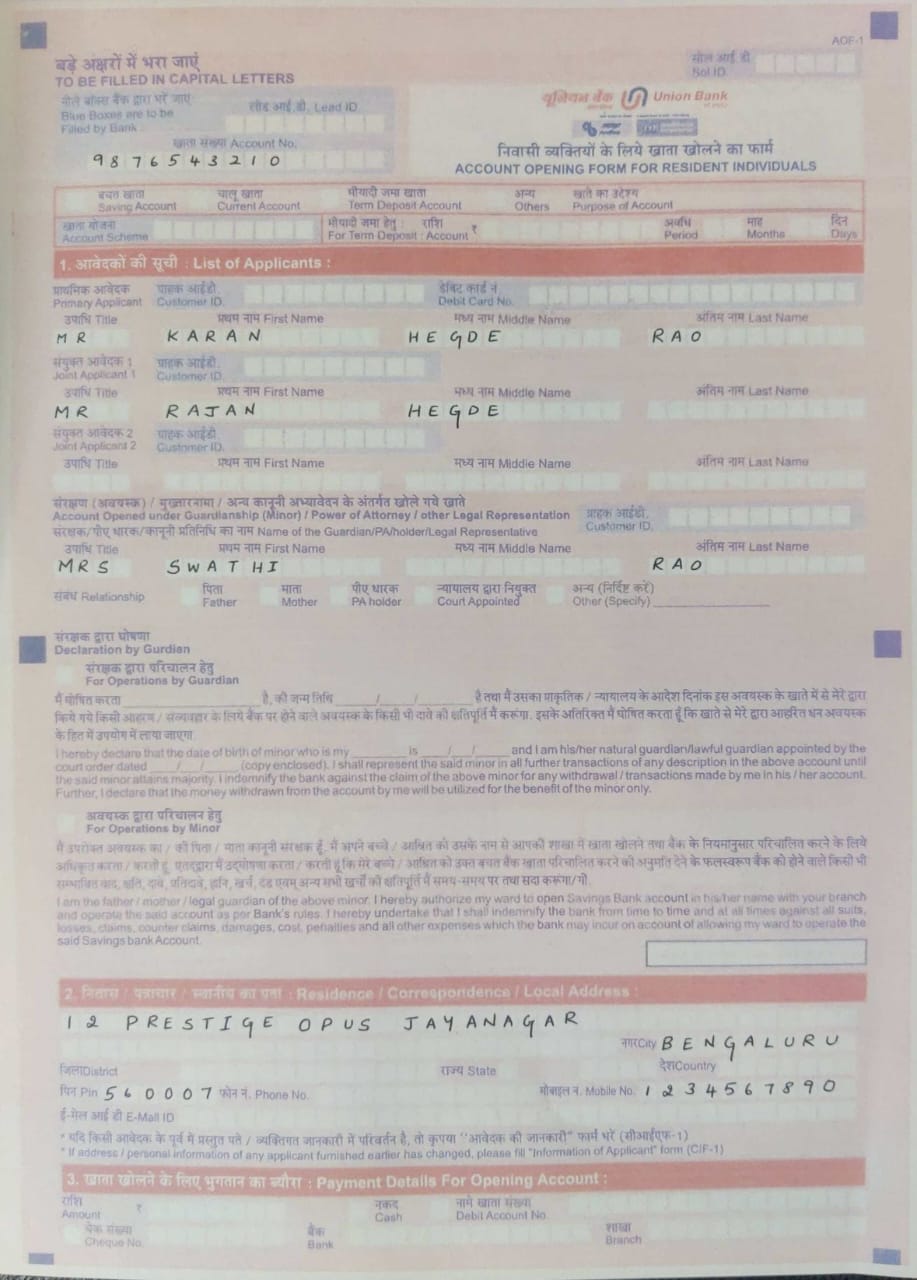 AOF-1
बड़े अक्षरों में भरा जाएं
TO BE FILLED IN CAPITAL LETTERS
सोल आई डी
Sol ID.
नीले बॉक्स बैंक द्वारा भरे जाएं
Blue Boxes are to be
Filled by Bank
लीड आई.डी. Lead ID.
खाता संख्या Account No.
9876543210
यूनियन बैंक Union Bank
निवासी व्यक्तियों के लिये खाता खोलने का फार्म
ACCOUNT OPENING FORM FOR RESIDENT INDIVIDUALS
बचत खाता चालू खाता मीयादी जमा खाता अन्य खाते का उद्देश्य
Saving Account Current Account Term Deposit Account Others Purpose of Account
खाता योजना मीयादी जमा हेतु : राशि ₹ अवधि माह दिन
Account Scheme For Term Deposit : Account Period Months Days
1. आवेदकों की सूची : List of Applicants :
प्राथमिक आवेदक ग्राहक आईडी. डेबिट कार्ड नं.
Primary Applicant Customer ID. Debit Card No.
उपाधि Title प्रथम नाम First Name मध्य नाम Middle Name अंतिम नाम Last Name
MR KARAN HEGDE RAO
संयुक्त आवेदक 1 ग्राहक आईडी.
Joint Applicant 1 Customer ID.
उपाधि Title प्रथम नाम First Name मध्य नाम Middle Name अंतिम नाम Last Name
MR RAJAN HEGDE
संयुक्त आवेदक 2 ग्राहक आईडी.
Joint Applicant 2 Customer ID.
उपाधि Title प्रथम नाम First Name मध्य नाम Middle Name अंतिम नाम Last Name
संरक्षण (अवयस्क) / मुख्तारनामा / अन्य कानूनी अभ्यावेदन के अंतर्गत खोले गये खाते
Account Opened under Guardianship (Minor) / Power of Attorney / other Legal Representation
ग्राहक आईडी.
Customer ID.
संरक्षक/पीए धारक/कानूनी प्रतिनिधि का नाम Name of the Guardian/PA/holder/Legal Representative
उपाधि Title प्रथम नाम First Name मध्य नाम Middle Name अंतिम नाम Last Name
MRS SWATHI RAO
संबंध Relationship
पिता माता पीए धारक न्यायालय द्वारा नियुक्त अन्य (निर्दिष्ट करें)
Father Mother PA holder Court Appointed Other (Specify)
संरक्षक द्वारा घोषणा
Declaration by Gurdian
संरक्षक द्वारा परिचालन हेतु
For Operations by Guardian
मैं घोषित करता है, की जन्म तिथि / / है तथा मैं उसका प्राकृतिक / न्यायालय के आदेश दिनांक इस अवयस्क के खाते में से मेरे द्वारा
किये गये किसी आहरण / संव्यवहार के लिये बैंक पर होने वाले अवयस्क के किसी भी दावे की क्षतिपूर्ति मैं करूंगा. इसके अतिरिक्त मैं घोषित करता हूँ कि खाते से मेरे द्वारा आहरित धन अवयस्क
के हित में उपयोग में लाया जाएगा.
I hereby declare that the date of birth of minor who is my is / / and I am his/her natural guardian/lawful guardian appointed by the
court order dated / / (copy enclosed). I shall represent the said minor in all further transactions of any description in the above account until
the said minor attains majority. I indemnify the bank against the claim of the above minor for any withdrawal / transactions made by me in his / her account.
Further, I declare that the money withdrawn from the account by me will be utilized for the benefit of the minor only.
अवयस्क द्वारा परिचालन हेतु
For Operations by Minor
मैं उपरोक्त अवयस्क का / की पिता / माता कानूनी संरक्षक हूँ. मैं अपने बच्चे / आश्रित को उसके नाम से आपकी शाखा में खाता खोलने तथा बैंक के नियमानुसार परिचालित करने के लिये
अधिकृत करता / करती हूँ. एतद्द्वारा मैं उद्घोषणा करता / करती हूँ कि मेरे बच्चे / आश्रित को उक्त बचत बैंक खाता परिचालित करने की अनुमति देने के फलस्वरूप बैंक को होने वाले किसी भी
सम्भावित वाद, क्षति, दावे, प्रतिदावे, हानि, खर्च, दंड एवम् अन्य सभी खर्चों की क्षतिपूर्ति मैं समय-समय पर तथा सदा करूंगा/गी.
I am the father / mother / legal guardian of the above minor. I hereby authorize my ward to open Savings Bank account in his/her name with your branch
and operate the said account as per Bank's rules. I hereby undertake that I shall indemnify the bank from time to time and at all times against all suits,
losses, claims, counter claims, damages, cost, penalties and all other expenses which the bank may incur on account of allowing my ward to operate the
said Savings bank Account.
2. निवास / पत्राचार / स्थानीय का पता : Residence / Correspondence / Local Address :
12 PRESTIGE OPUS JAYANAGAR
नगरCity BENGALURU
जिलाDistrict राज्य State देशCountry
पिन Pin 560007 फोन नं. Phone No. मोबाइल नं. Mobile No. 1234567890
ई-मेल आई डी E-Mail ID
* यदि किसी आवेदक के पूर्व में प्रस्तुत पते / व्यक्तिगत जानकारी में परिवर्तन है, तो कृपया "आवेदक की जानकारी" फार्म भरें (सीआईएफ-1)
* If address / personal information of any applicant furnished earlier has changed, please fill "Information of Applicant" form (CIF-1)
3. खाता खोलने के लिए भुगतान का ब्यौरा : Payment Details For Opening Account :
राशि ₹ नकद नामे खाता संख्या
Amount Cash Debit Account No.
चेक संख्या बैंक शाखा
Cheque No. Bank Branch